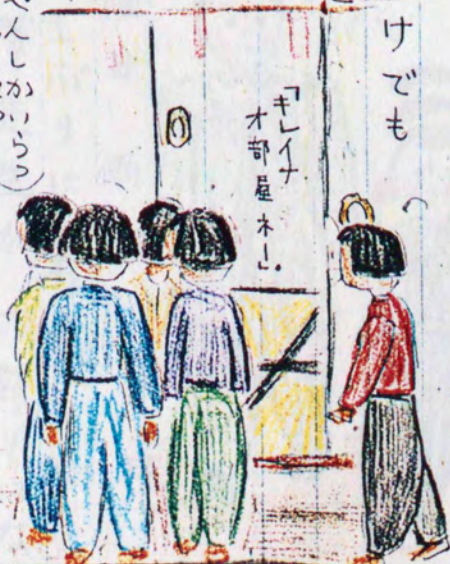 けでも
「キレイナ
オ部屋ネー」。
べんしかいらっ